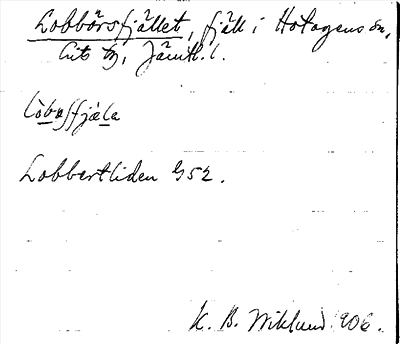 Lobbörsfjället, fjäll i Hotagens sn,
Lits tg, Jämtl. l.
Lobbertliden G52.
K. B. Wiklund 1906.